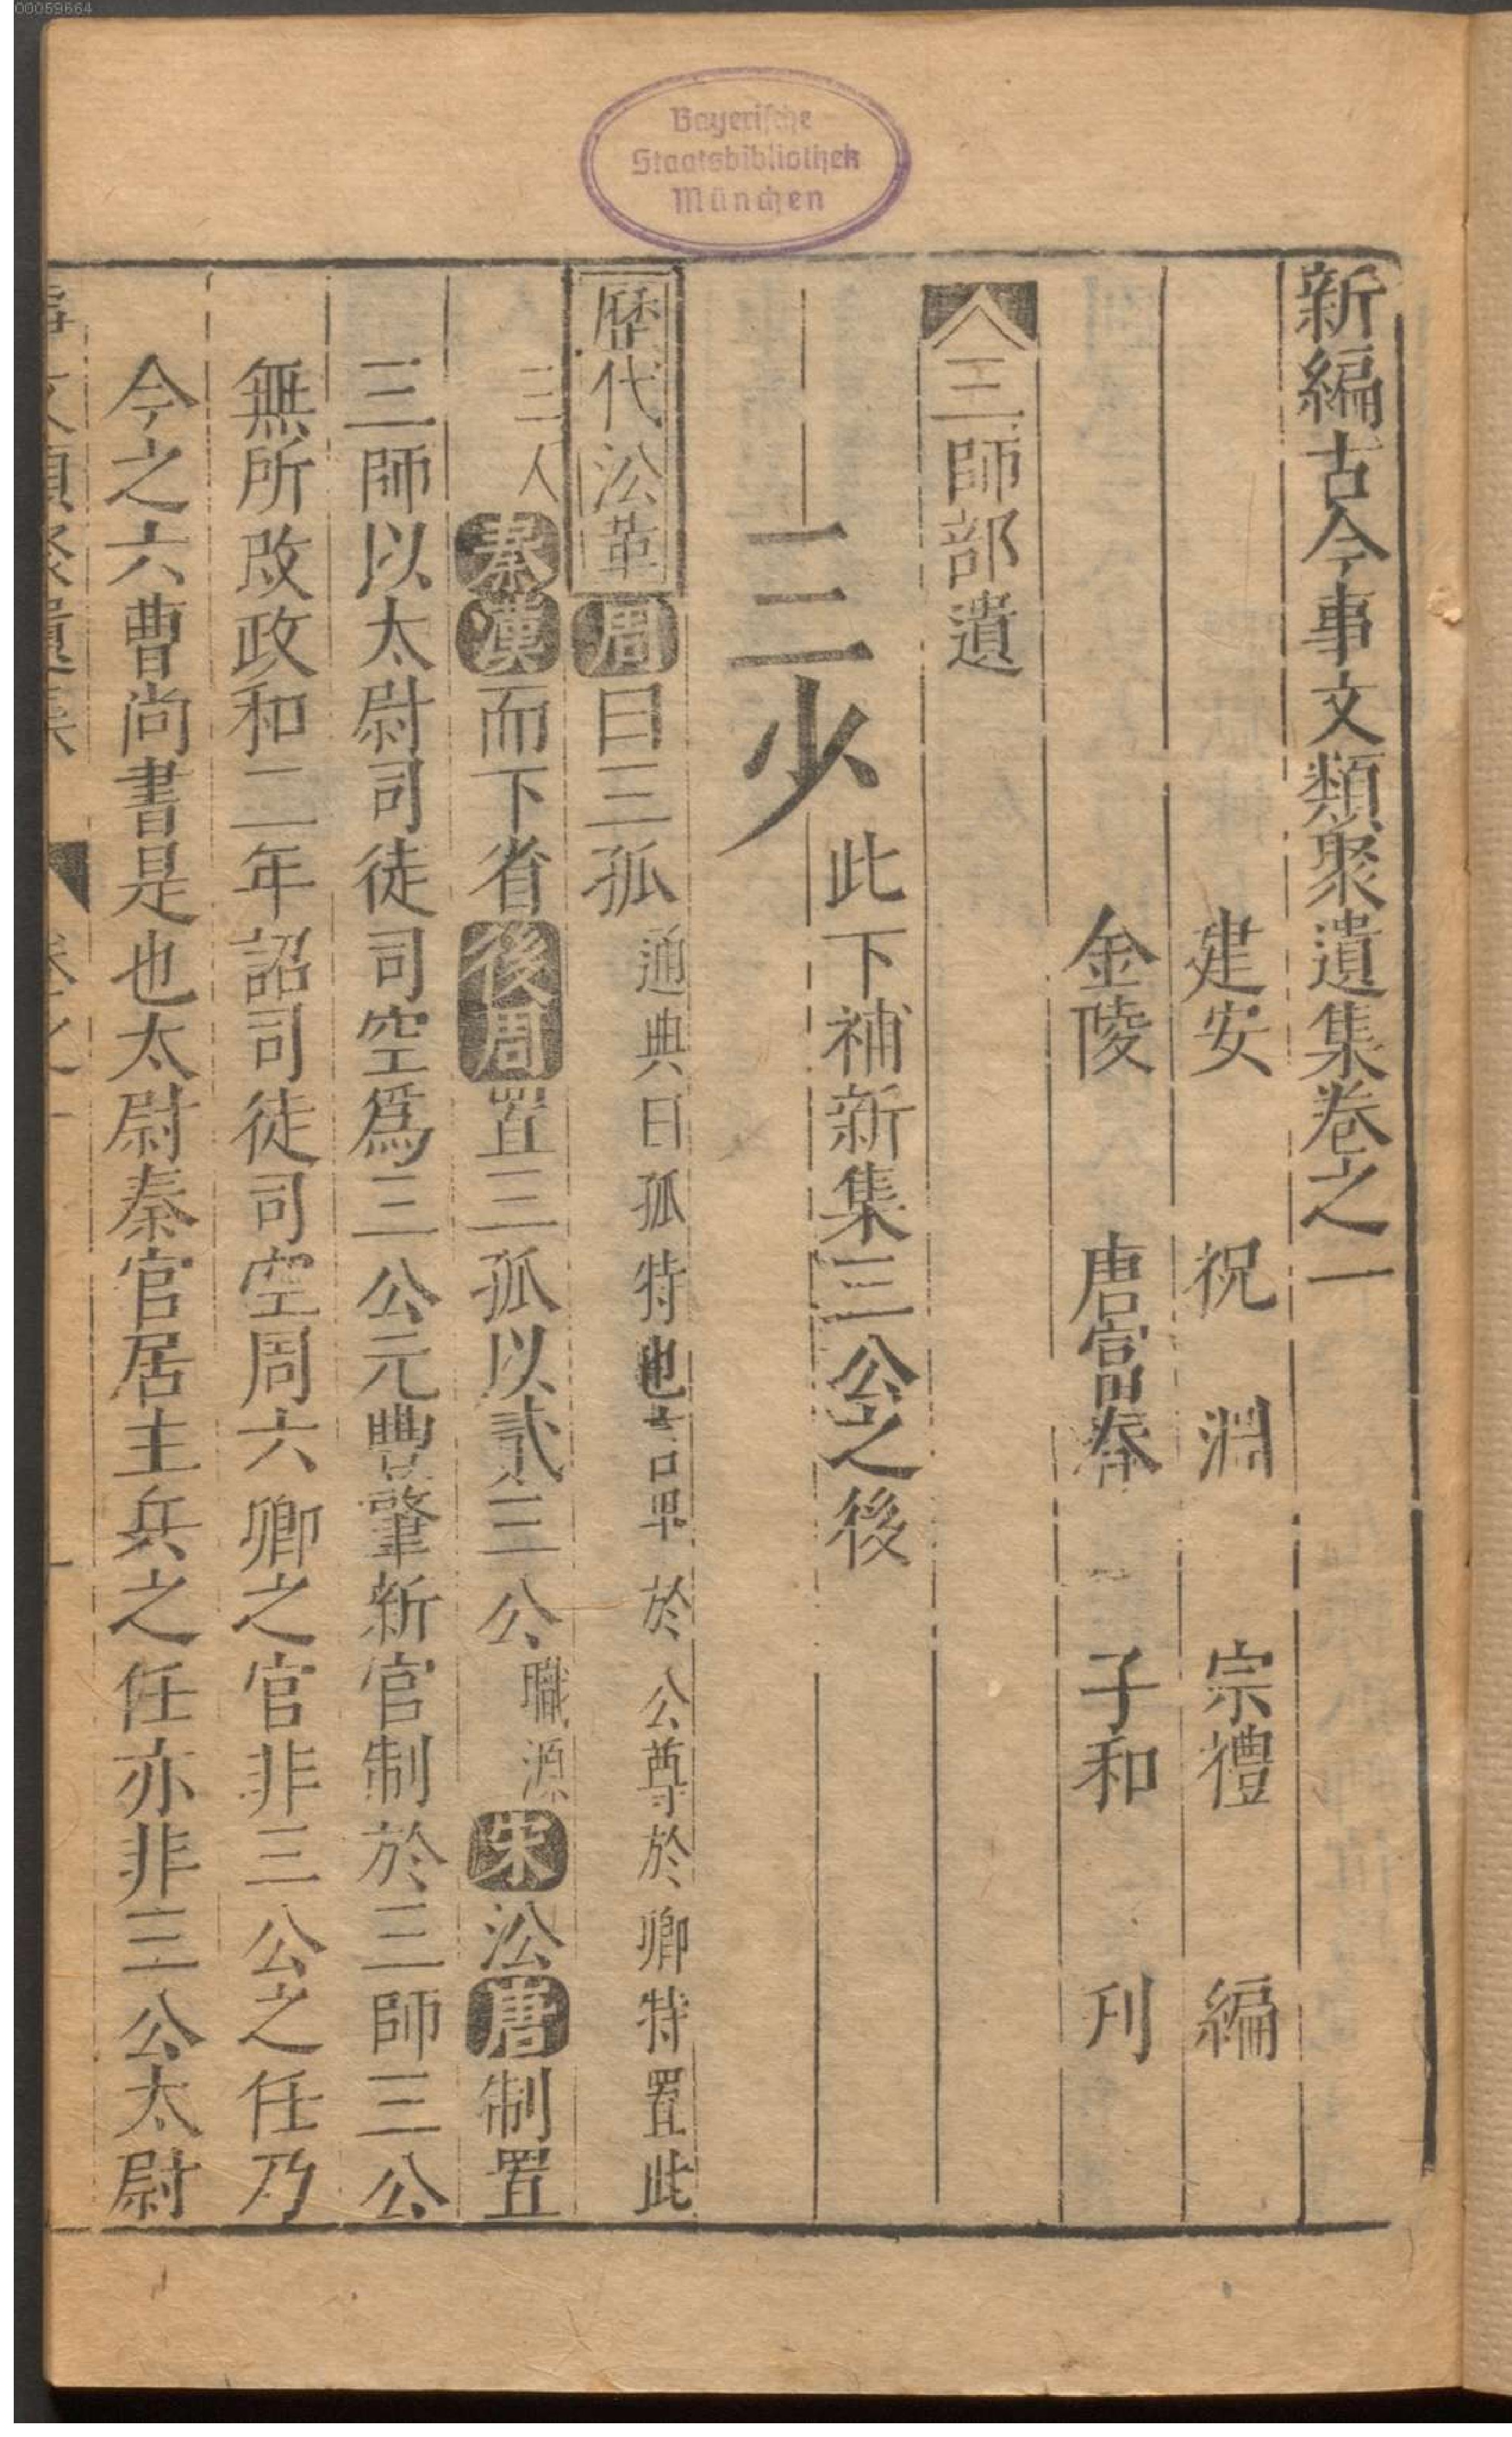 00059664
Bayerische
Staatsbibliothek
München
新編古今事文類聚遺集卷之一
建安 祝 淵 宗禮 編
金陵 唐富春 子和 刊
三師部遺
三少 此下補新集三公之後
歷代㳂革 周曰三孤 通典曰孤特也言卑於公尊於卿特置此
三人 秦漢而下省後周置三孤以貳三公 職源 宋㳂唐制置
三師以太尉司徒司空爲三公元豐肇新官制於三師三公
無所改政和二年詔司徒司空周六卿之官非三公之任乃
今之六曹尚書是也太尉秦官居主兵之任亦非三公太尉
事文類聚遺集 卷之一 一